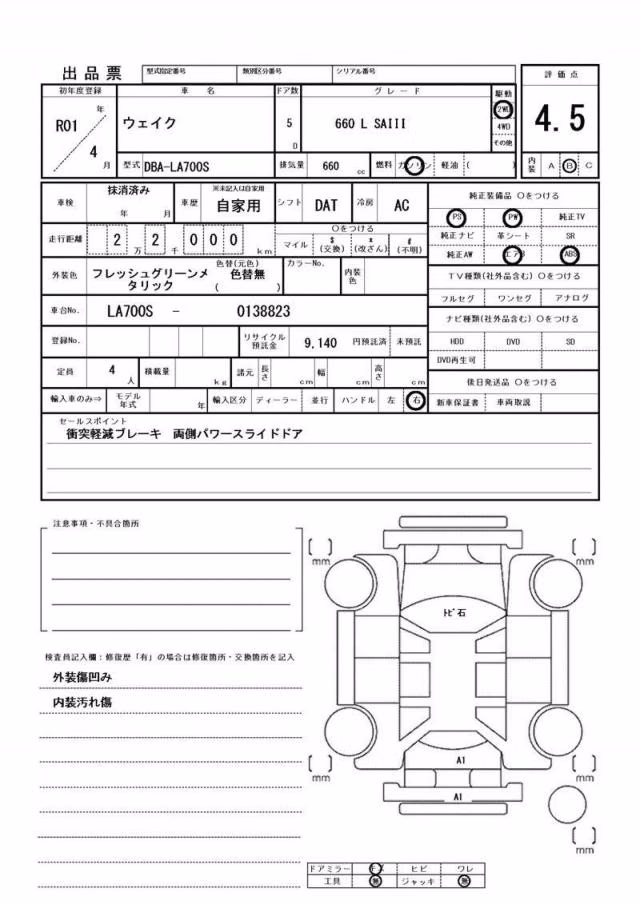 出品票 型式指定番号 類別区分番号 シリアル番号 評価点
初年度登録 車名 ドア数 グレード 駆動
R01 年 4 月 ウェイク 5 D 660 L SAIII 2WD 4WD その他 4.5
型式 DBA-LA700S 排気量 660 cc 燃料 ガソリン 軽油 ( ) 内装 A B C
車検 抹消済み 年 月 車歴 ※未記入は自家用 自家用 シフト DAT 冷房 AC 純正装備品 ○をつける
PS PW 純正TV
走行距離 2 万 2 千 0 0 0 km ○をつける マイル $ (交換) x (改ざん) # (不明) 純正ナビ 革シート SR
純正AW エアB ABS
外装色 フレッシュグリーンメタリック 色替(元色) 色替無 ( ) カラーNo. 内装色 TV種類(社外品含む) ○をつける
フルセグ ワンセグ アナログ
車台No. LA700S - 0138823 ナビ種類(社外品含む) ○をつける
登録No. リサイクル預託金 9,140 円預託済 未預託 HDD DVD SD
DVD再生可
定員 4 人 積載量 kg 諸元 長さ cm 幅 cm 高さ cm 後日発送品 ○をつける
輸入車のみ⇒ モデル年式 年 輸入区分 ディーラー 並行 ハンドル 左 右 新車保証書 車両取説
セールスポイント
衝突軽減ブレーキ 両側パワースライドドア
注意事項・不具合箇所
[ ] mm [ ] mm
ﾄﾋﾞ石
検査員記入欄：修復歴「有」の場合は修復箇所・交換箇所を記入
外装傷凹み
内装汚れ傷
A1
[ ] mm [ ] mm
A1
[ ] mm
ドアミラー キズ ヒビ ワレ
工具 無 ジャッキ 無